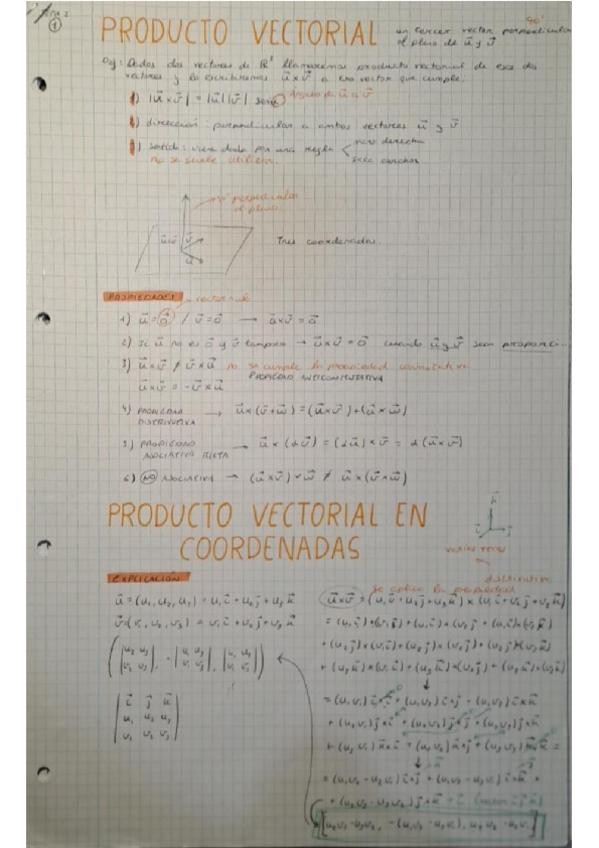 ①
PRODUCTO VECTORIAL
90°
un tercer vector perpendicular
al plano de u⃗ y v⃗
Def: Dados dos vectores de R³ llamaremos producto vectorial de esos dos
vectores y lo escribiremos u⃗ × v⃗ a otro vector que cumple:
1) |u⃗ × v⃗| = |u⃗| |v⃗| sen α Ángulo de u⃗ a v⃗
2) dirección: perpendicular a ambos vectores u⃗ y v⃗
3) sentido: viene dado por una regla mano derecha
saca corchos
no se suele utilizar.
perpendicular
al plano
u⃗×v⃗
v⃗
u⃗
Tres coordenadas.
PROPIEDADES
vector nulo
1) u⃗ = 0⃗ / v⃗ = 0⃗ → u⃗ × v⃗ = 0⃗
2) Si u⃗ no es 0⃗ y v⃗ tampoco → u⃗ × v⃗ = 0⃗ cuando u⃗ y v⃗ sean proporci...
3) u⃗ × v⃗ ≠ v⃗ × u⃗ no se cumple la propiedad conmutativa
u⃗ × v⃗ = - v⃗ × u⃗ PROPIEDAD ANTICONMUTATIVA
4) PROPIEDAD DISTRIBUTIVA → u⃗ × (v⃗ + w⃗) = (u⃗ × v⃗) + (u⃗ × w⃗)
5) PROPIEDAD ASOCIATIVA → u⃗ × (α v⃗) = (α u⃗) × v⃗ = α (u⃗ × v⃗)
6) NO ASOCIATIVA → (u⃗ × v⃗) × w⃗ ≠ u⃗ × (v⃗ × w⃗)
PRODUCTO VECTORIAL EN
COORDENADAS
k⃗
i⃗ j⃗
EXPLICACIÓN
distributiva
se aplica la propiedad
u⃗ = (u₁, u₂, u₃) = u₁ i⃗ + u₂ j⃗ + u₃ k⃗
v⃗ = (v₁, v₂, v₃) = v₁ i⃗ + v₂ j⃗ + v₃ k⃗
(|u₂ u₃ / v₂ v₃|, -|u₁ u₃ / v₁ v₃|, |u₁ u₂ / v₁ v₂|)
|i⃗ j⃗ k⃗|
|u₁ u₂ u₃|
|v₁ v₂ v₃|
u⃗ × v⃗ = (u₁ i⃗ + u₂ j⃗ + u₃ k⃗) × (v₁ i⃗ + v₂ j⃗ + v₃ k⃗)
= (u₁ i⃗) × (v₁ i⃗) + (u₁ i⃗) × (v₂ j⃗) + (u₁ i⃗) × (v₃ k⃗)
+ (u₂ j⃗) × (v₁ i⃗) + (u₂ j⃗) × (v₂ j⃗) + (u₂ j⃗) × (v₃ k⃗)
+ (u₃ k⃗) × (v₁ i⃗) + (u₃ k⃗) × (v₂ j⃗) + (u₃ k⃗) × (v₃ k⃗)
= (u₁ v₁) i⃗ × i⃗ + (u₁ v₂) i⃗ × j⃗ + (u₁ v₃) i⃗ × k⃗
+ (u₂ v₁) j⃗ × i⃗ + (u₂ v₂) j⃗ × j⃗ + (u₂ v₃) j⃗ × k⃗
+ (u₃ v₁) k⃗ × i⃗ + (u₃ v₂) k⃗ × j⃗ + (u₃ v₃) k⃗ × k⃗ =
= (u₁ v₂ - u₂ v₁) i⃗ × j⃗ + (u₁ v₃ - u₃ v₁) i⃗ × k⃗ +
+ (u₂ v₃ - u₃ v₂) j⃗ × k⃗ =
[u₂ v₃ - u₃ v₂, -(u₁ v₃ - u₃ v₁), u₁ v₂ - u₂ v₁]